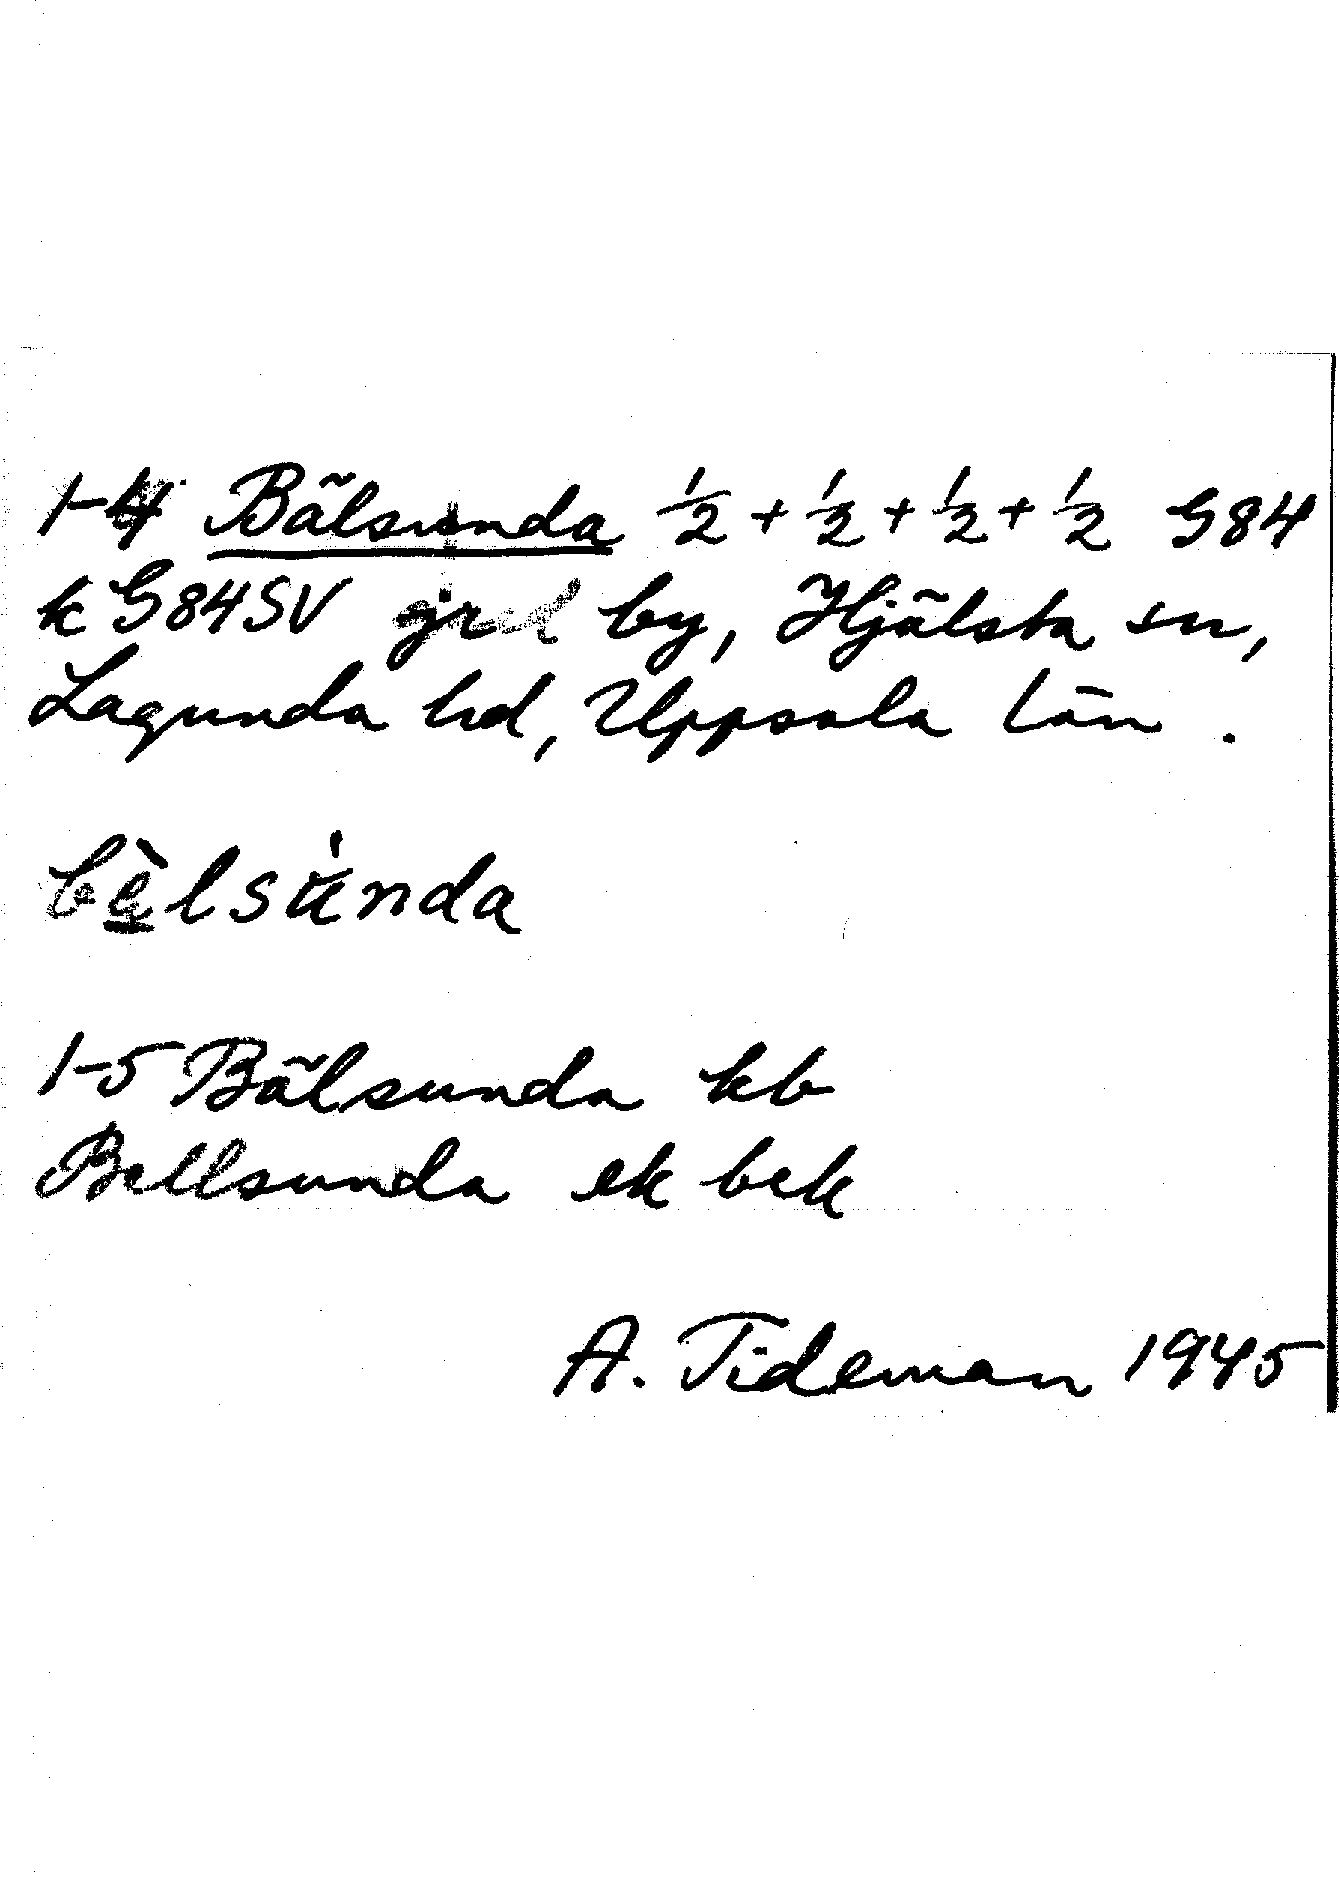 1-4 Bälsunda ½ + ½ + ½ + ½ G84
k G84SV jrd by, Hjälsta sn,
Lagunda hd, Uppsala län.
bèlsùnda
1-5 Bälsunda kb
Bellsunda ek bek
A. Tideman 1945